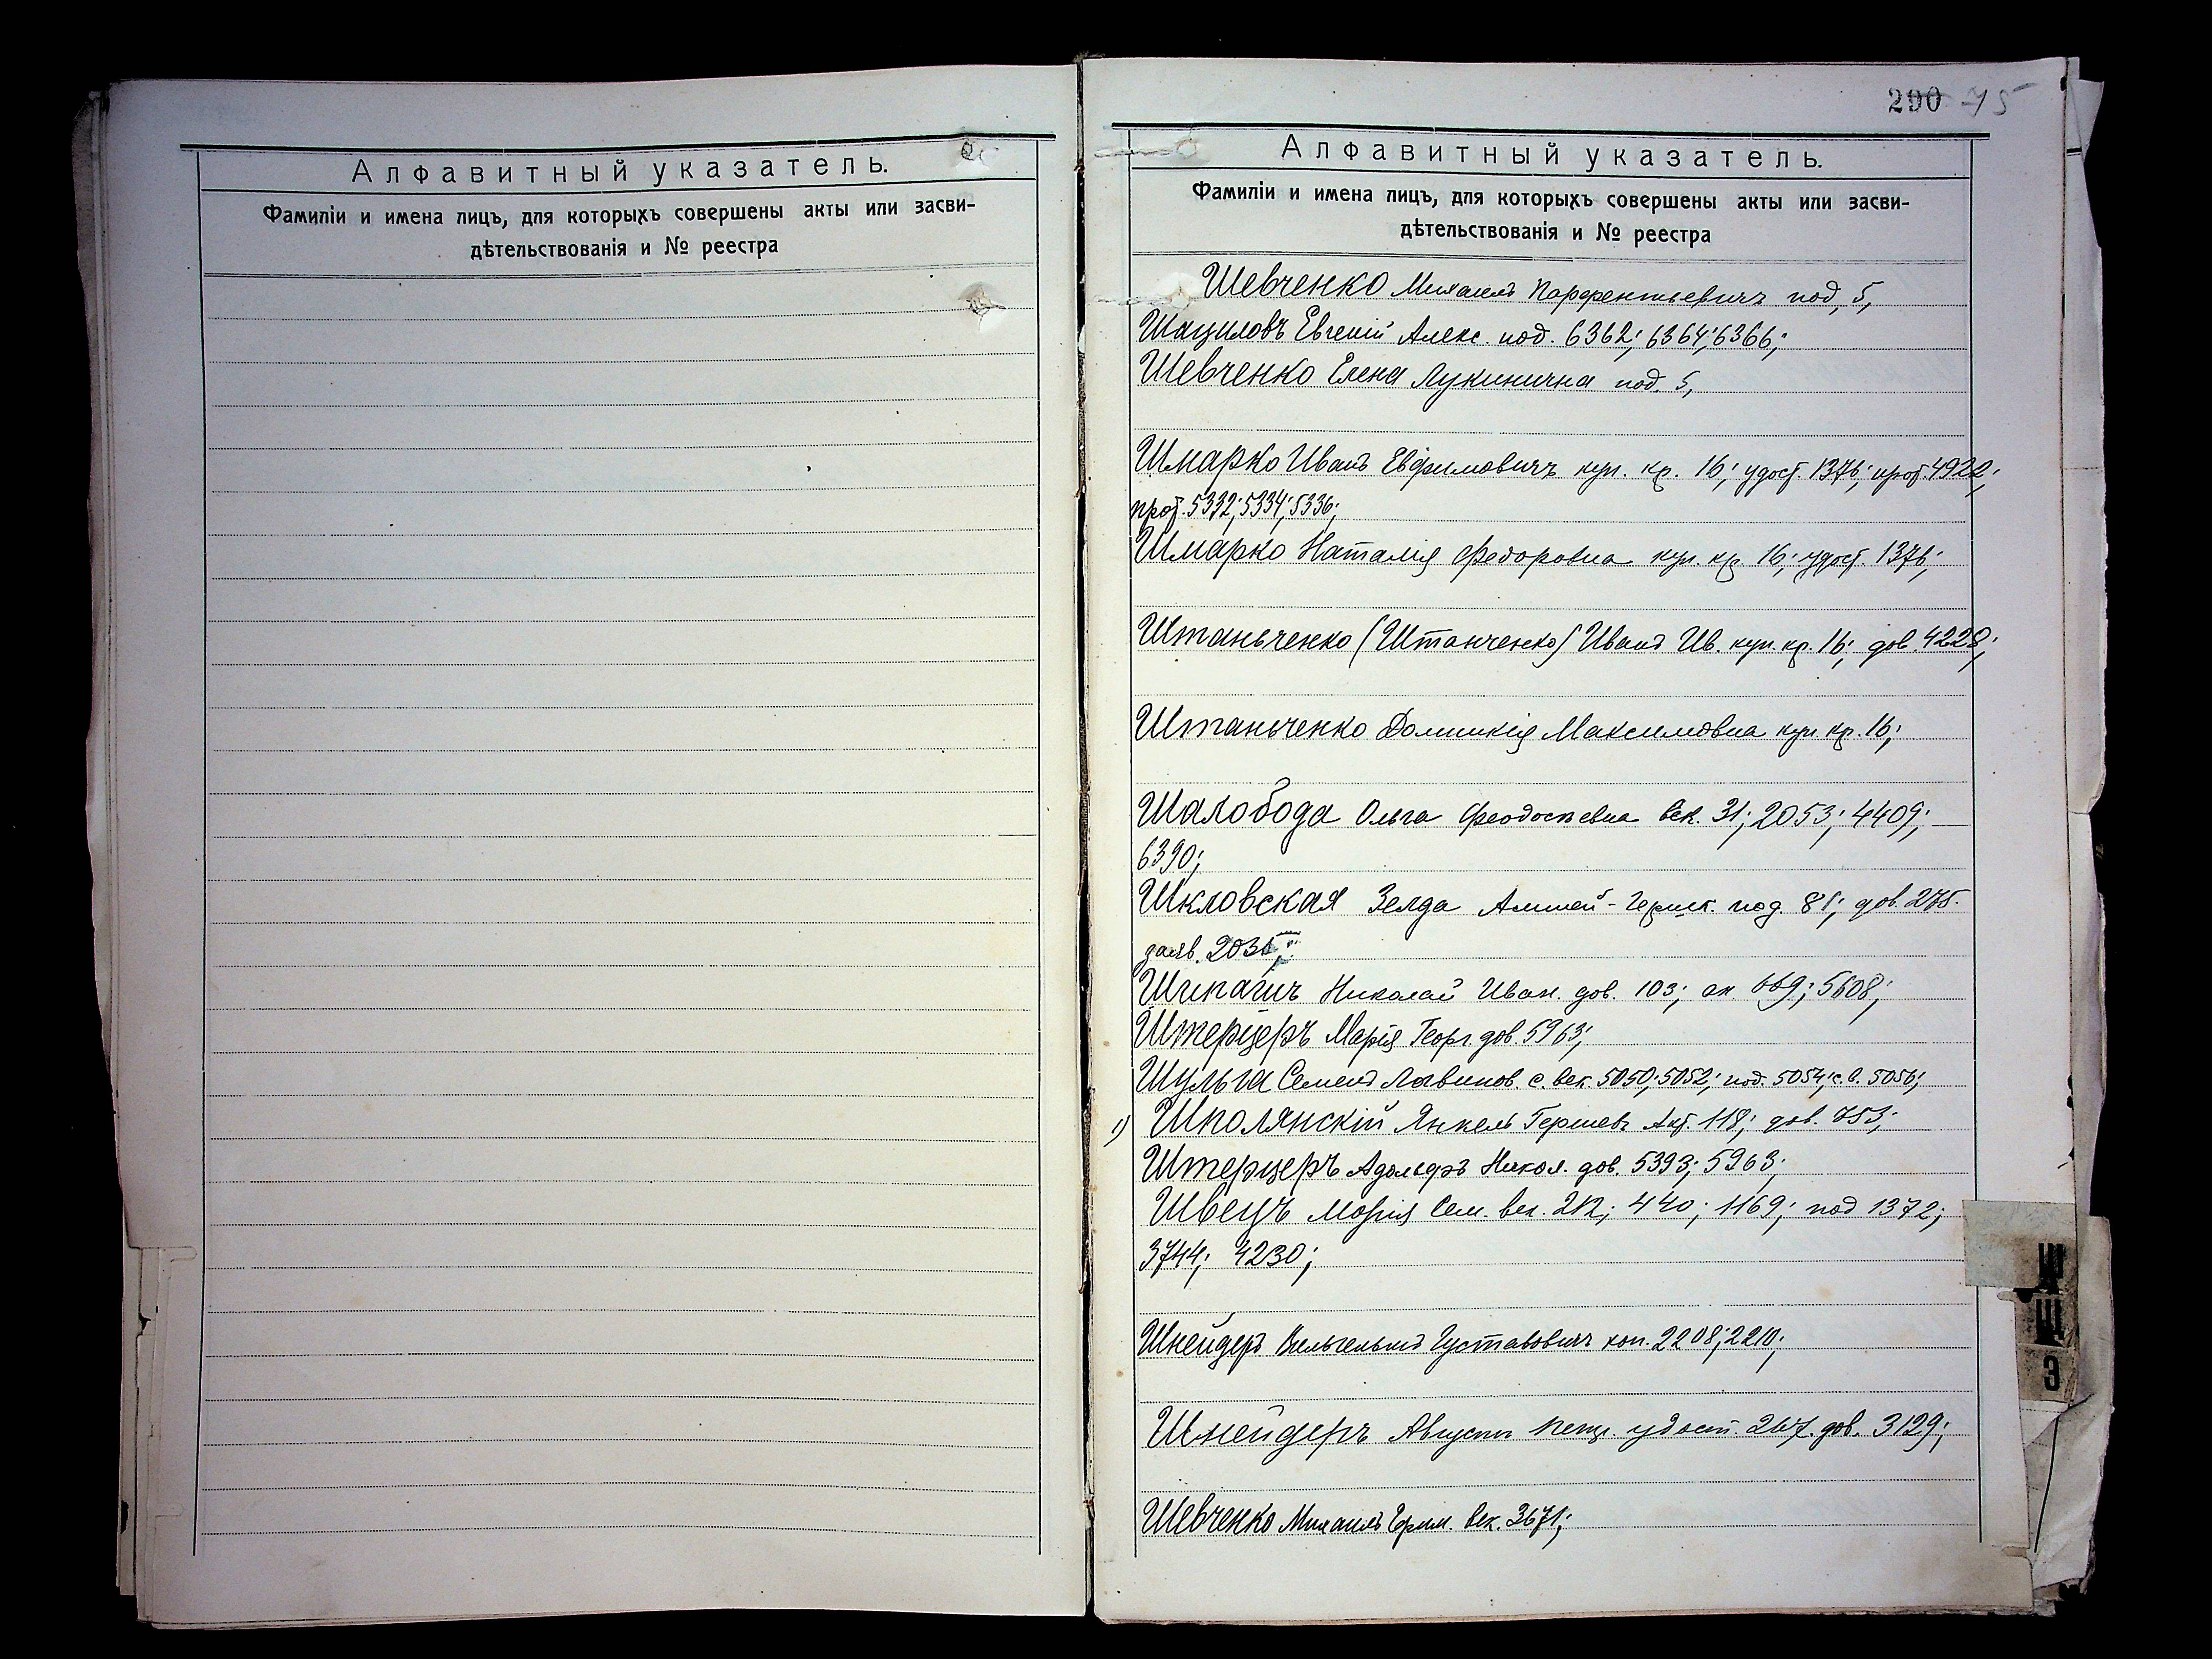 Алфавитный указатель.
Фамиліи и имена лицъ, для которыхъ совершены акты или засви-
дѣтельствованія и № реестра
290 75
Алфавитный указатель.
Фамиліи и имена лицъ, для которыхъ совершены акты или засви-
дѣтельствованія и № реестра
Шевченко Михаилъ Парфентьевичъ под. 5,
Шациловъ Евгеній Алекс. под. 6362; 6364; 6366;
Шевченко Елена Лукинична под. 5,
Шмарко Иванъ Евфимовичъ куп. кр. 16; удост. 1376; прот. 4922;
прот. 5332; 5334; 5336;
Шмарко Наталія Федоровна куп. кр 16; удост. 1376;
Штаньченко (Штанченко) Иванъ Ив. куп. кр. 16; дов. 4228;
Штаньченко Домникія Максимовна куп. кр. 16;
Шалобода Ольга Феодосіевна век. 31; 2053; 4409;
6390;
Шкловская Зелда под. 81; дов. 275.
заяв.
Шипагинъ Николай Иван. дов. 103; 669; 5608;
Штерцеръ Марія Георг. дов. 5963;
Шульга Семенъ Логвинов. с. век. 5050; 5052; под. 5054; с. в. 5056;
1) Шполянскій Янкель Гершевъ Акт. 118; дов. 753;
Штерцеръ Адольфъ Никол. дов. 5393; 5963;
Швецъ Марія Сем. век. 212; 440; 1169; под 1372;
3744; 4230;
Шнейдеръ Вильгельмъ Густавовичъ коп. 2208; 2210;
Шнейдеръ Августъ Петр. удост. 267. дов. 3129;
Шевченко Михаилъ век. 3671;
Ш
Щ
Э